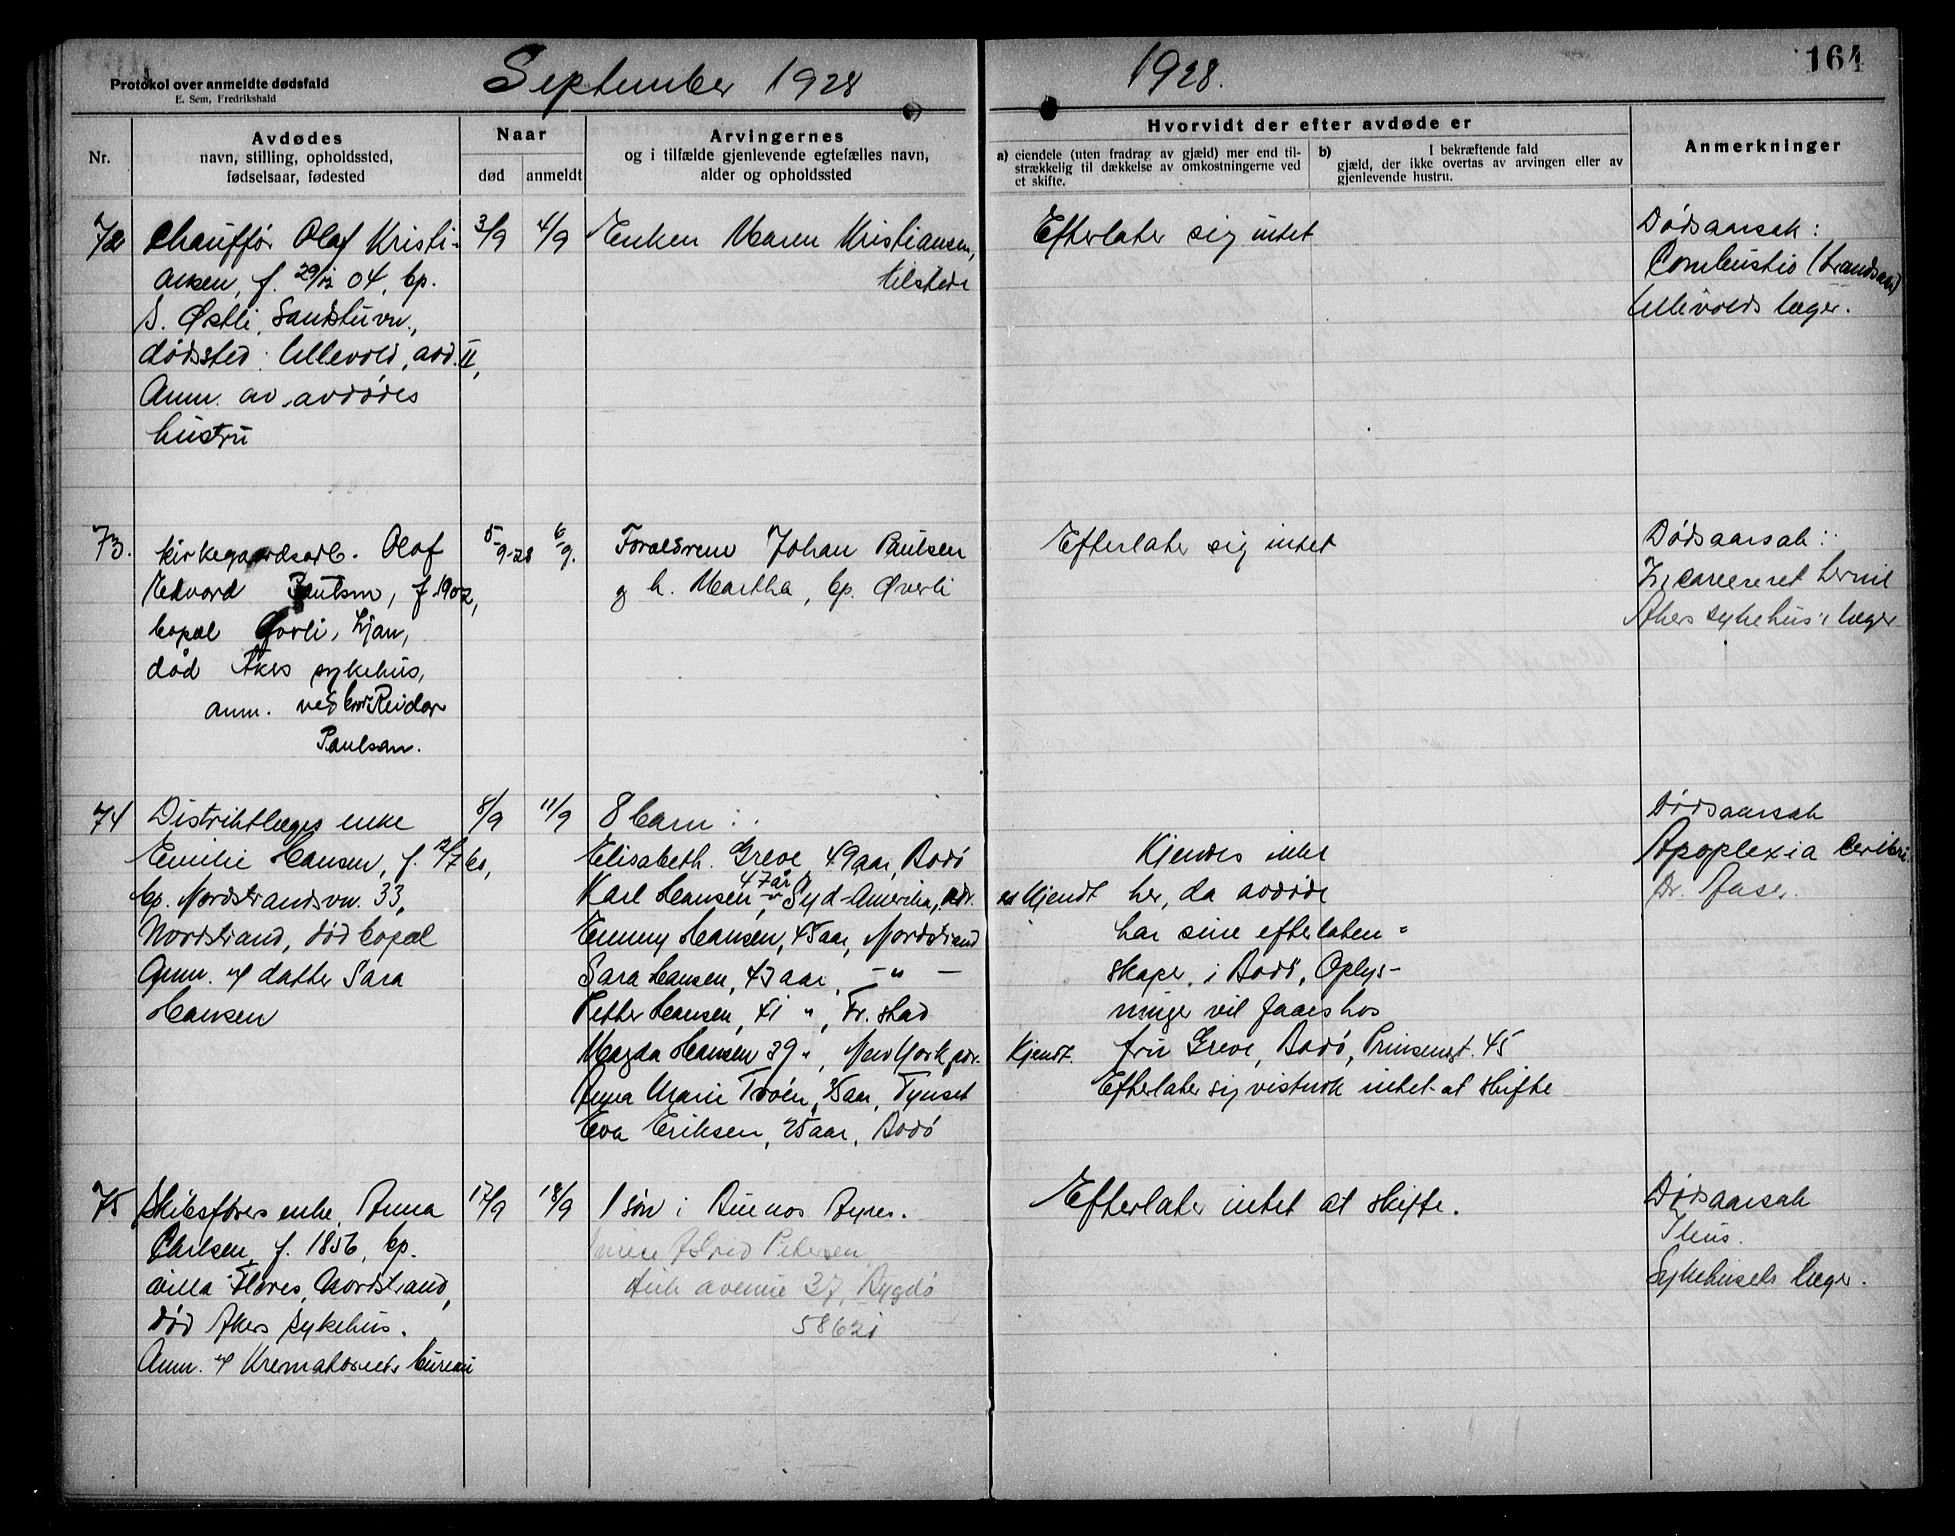 Protokol over anmeldte dødsfald
E. Sem, Fredrikshald
September 1928
1928.
164
Nr.
Avdødes
navn, stilling, opholdssted,
fødselsaar, fødested
Naar
død
anmeldt
Arvingernes
og i tilfælde gjenlevende egtefælles navn,
alder og opholdssted
Hvorvidt der efter avdøde er
a) eiendele (uten fradrag av gjæld) mer end til-
strækkelig til dækkelse av omkostningerne ved
et skifte.
b) I bekræftende fald
gjæld, der ikke overtas av arvingen eller av
gjenlevende hustru.
Anmerkninger
72
Chauffør Olaf Kristi-
ansen, f. 29/12 04, bp.
S. Østli, Sandstuvn.,
dødsted: Ullevold, avd. II,
Anm. av avdødes
hustru
3/9
4/9
Enken Maren Kristiansen,
tilstede
Efterlater sig intet
Dødsaarsak:
Combustio
Ullevolds læger.
73.
Kirkegaardsarb. Olaf
Edvard Paulsen, f. 1902,
bopæl Ljan,
død Akers sykehus,
anm. ved bror Reidar
Paulsen.
5/9-28
6/9.
Forældrene Johan Paulsen
og h. Martha, bp. Øverli
Efterlater sig intet
Dødsaarsak:
Incarcereret hernie
Akers sykehus's læger
74
Distriktlæges enke
Emilie Hansen, f. 12/7 60,
bp. Nordstrandsvn. 33,
Nordstrand, død bopæl
Anm. af datter Sara
Hansen
8/9
11/9
8 barn:
Elisabeth Greve 49 aar, Bodø
Karl Hansen, 47 år, Syd-Amerika, adr. ei kjendt
Emmy Hansen, 45 aar, Nordstrand
Sara Hansen, 43 aar, - " -
Petter Hansen, 41 ", Fr.stad
Magda Hansen 39 ", New York adr. Kjendt.
Anna Marie Troen, 35 aar, Tynset
Eva Eriksen, 25 aar, Bodø
Kjendes intet
her, da avdøde
har sine efterlaten-
skaper i Bodø, Oplys-
ninger vil faaes hos
fru Greve, Bodø, Prinsensgt. 45
Efterlater sig vistnok intet at skifte
Dødsaarsak
Apoplexia cerebri
Dr.
75
Skibsførers enke, Anna
Carlsen, f. 1856, bp.
villa Flores, Nordstrand,
død Akers sykehus.
Anm. af Krematoriets bureau
17/9
18/9
1 søn i Buenos Ayres.
Astrid Petersen
avenue 37, Bygdø
58621
Efterlater intet at skifte.
Dødsaarsak
Ileus.
Sykehusets læger.